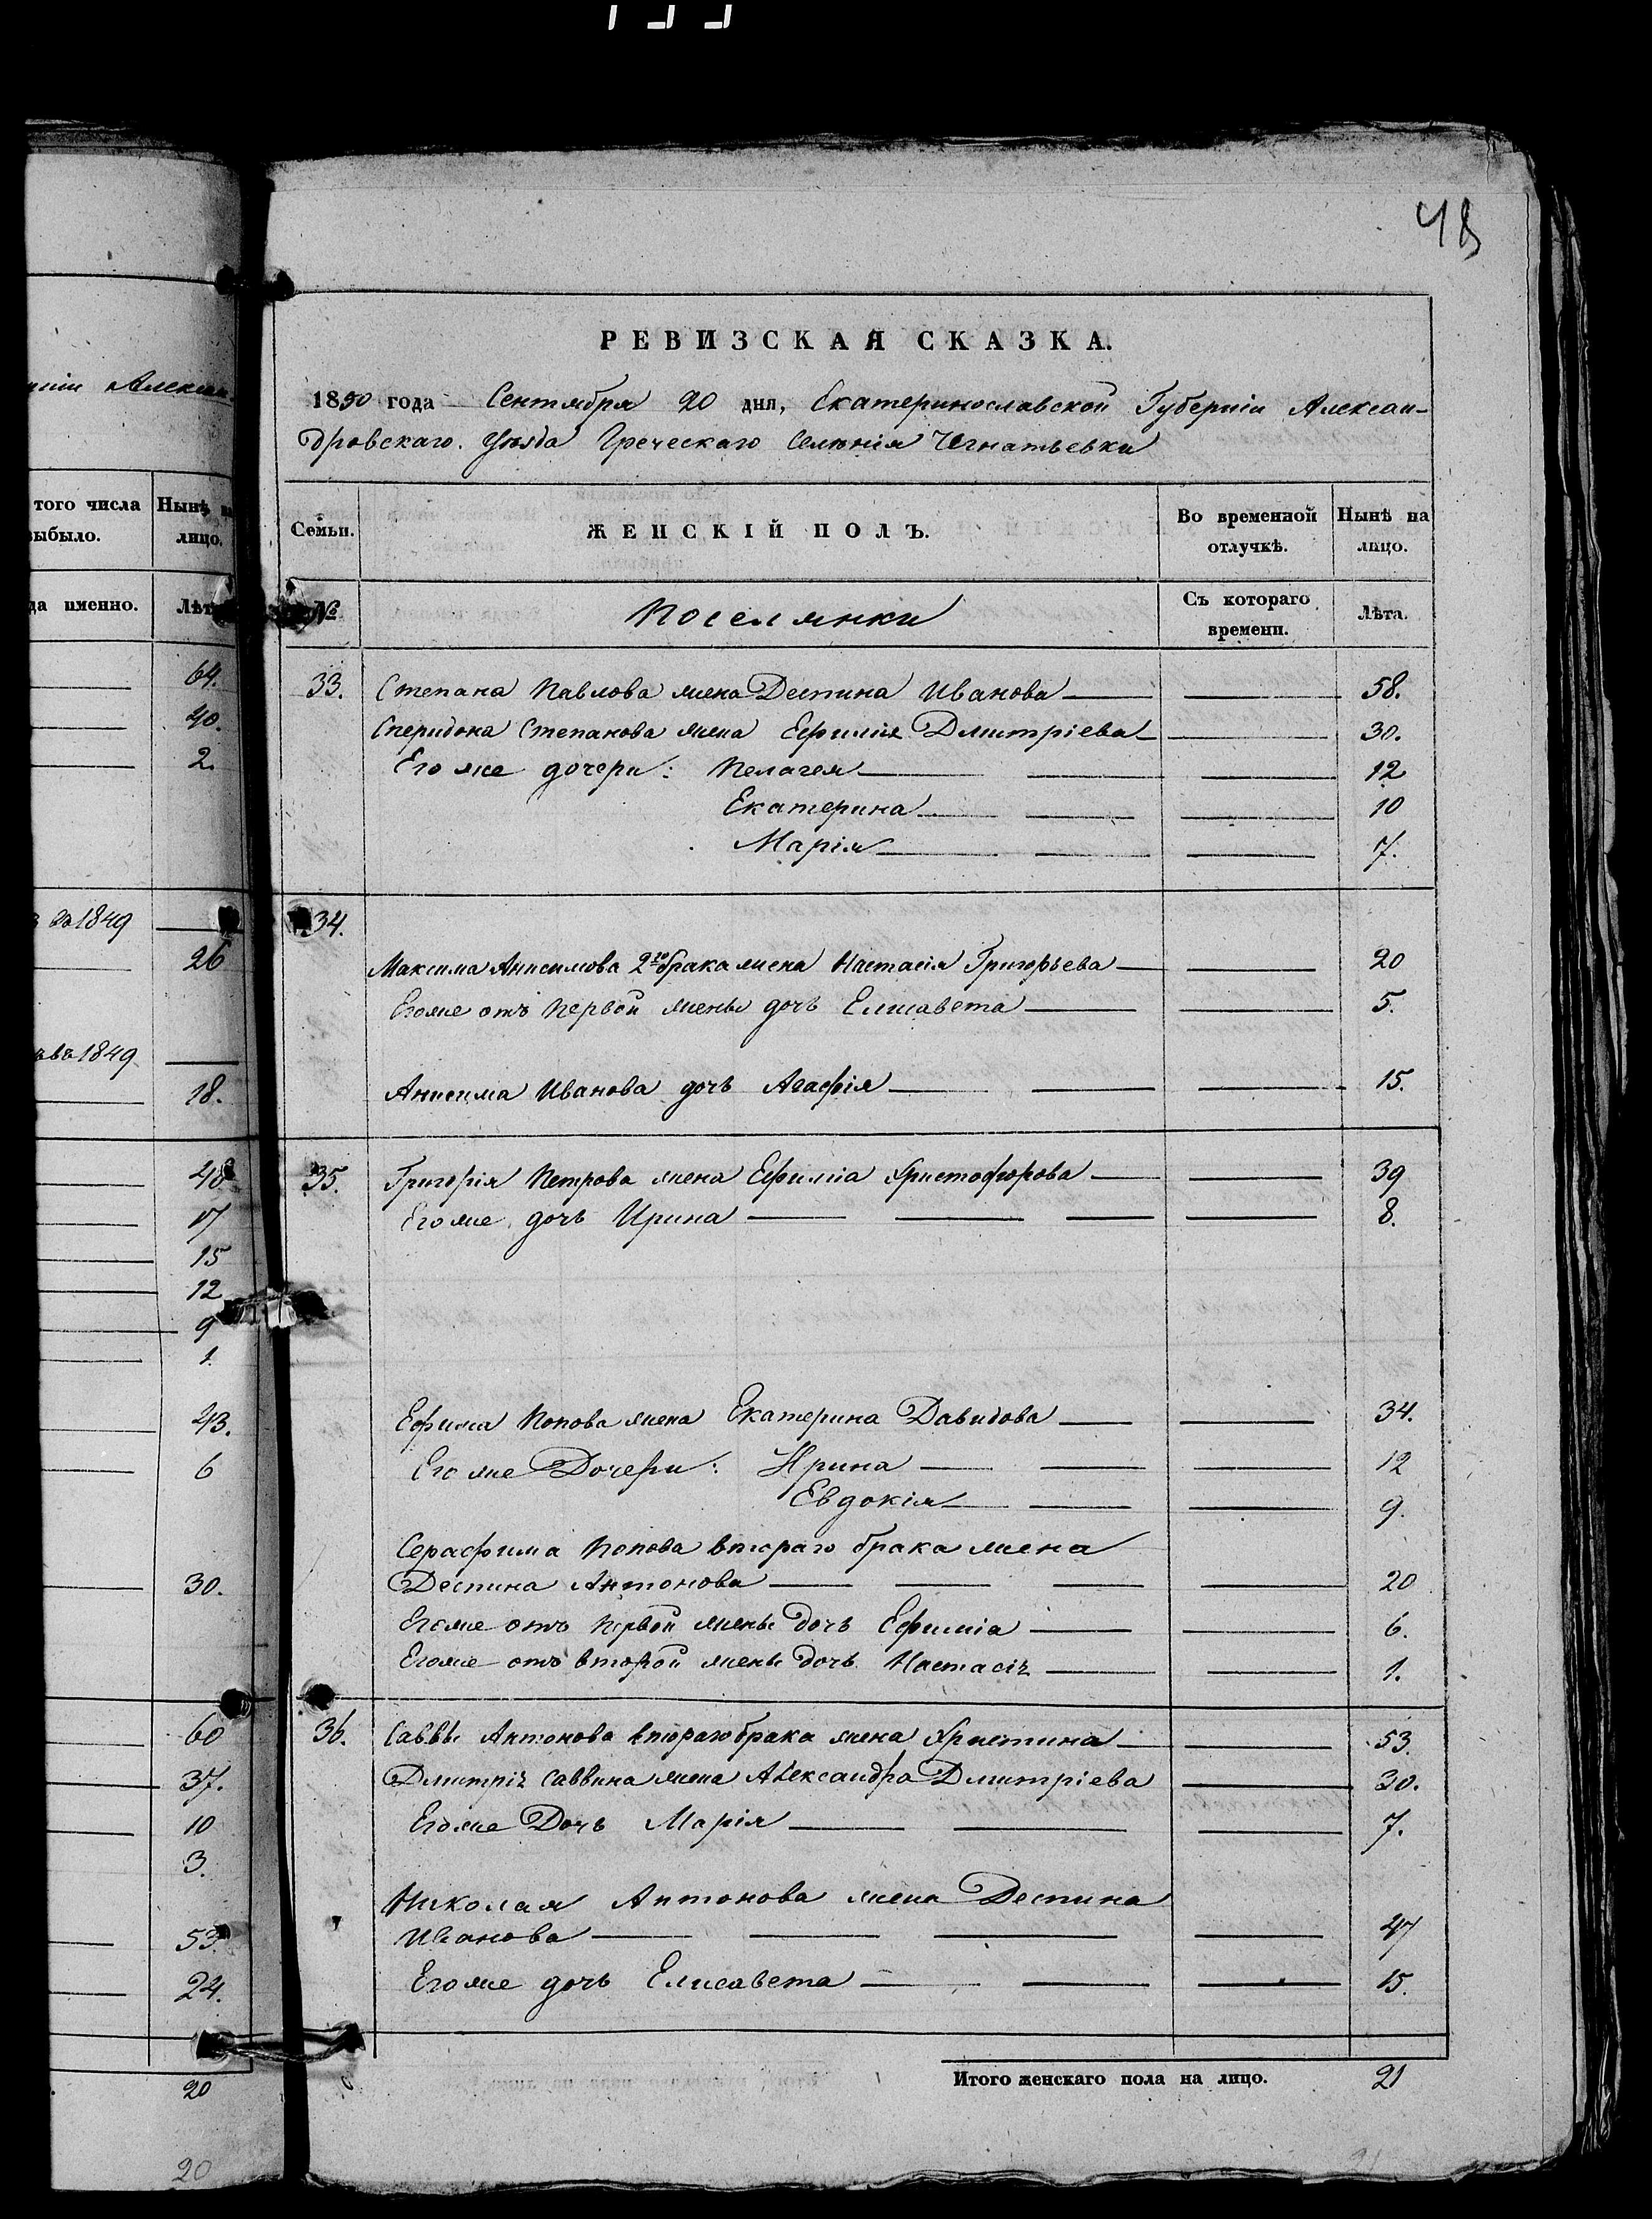 48
РЕВИЗСКАЯ СКАЗКА.
1850 года Сентября 20 дня, Екатеринославской Губерніи Алексан-
дровскаго Уѣзда Греческаго Селѣнія Игнатьевки
Семьи. ЖЕНСКІЙ ПОЛЪ. Во временной отлучкѣ. Нынѣ на лицо.
№ Поселянки Съ котораго времени. Лѣта.
33. Степана Павлова жена Деспина Иванова 58.
Сперидона Степанова жена Ефимія Дмитріева 30.
Его же дочери: Пелагея 12
Екатерина 10
Марія 7.
34.
Максима Анисимова 2го брака жена Настасія Григорьева 20
Егоже отъ первой жены дочь Елисавета 5.
Анисима Иванова дочь Агафія 15.
35. Григорія Петрова жена Ефиміа Христофорова 39
Егоже дочь Ирина 8.
Ефима Попова жена Екатерина Давидова 34.
Его же Дочери: Ирина 12
Евдокія 9.
Серафима Попова втораго брака жена
Деспина Антонова 20
Егоже отъ первой жены дочь Ефиміа 6.
Егоже отъ второй жены дочь Настасія 1.
36. Саввы Антонова втораго брака жена Христина 53.
Дмитрія Саввина жена Александра Дмитріева 30.
Егоже Дочь Марія 7.
Николая Антонова жена Деспина
Иванова 47
Егоже дочь Елисавета 15.
Итого женскаго пола на лицо. 21
21
того числа
выбыло.
Нынѣ на
лицо.
да именно. Лѣта
64.
40.
2.
1849
26
1849
18.
48
17
15
12
9
1.
43.
6
30.
60
37.
10
3.
53
24.
20
20